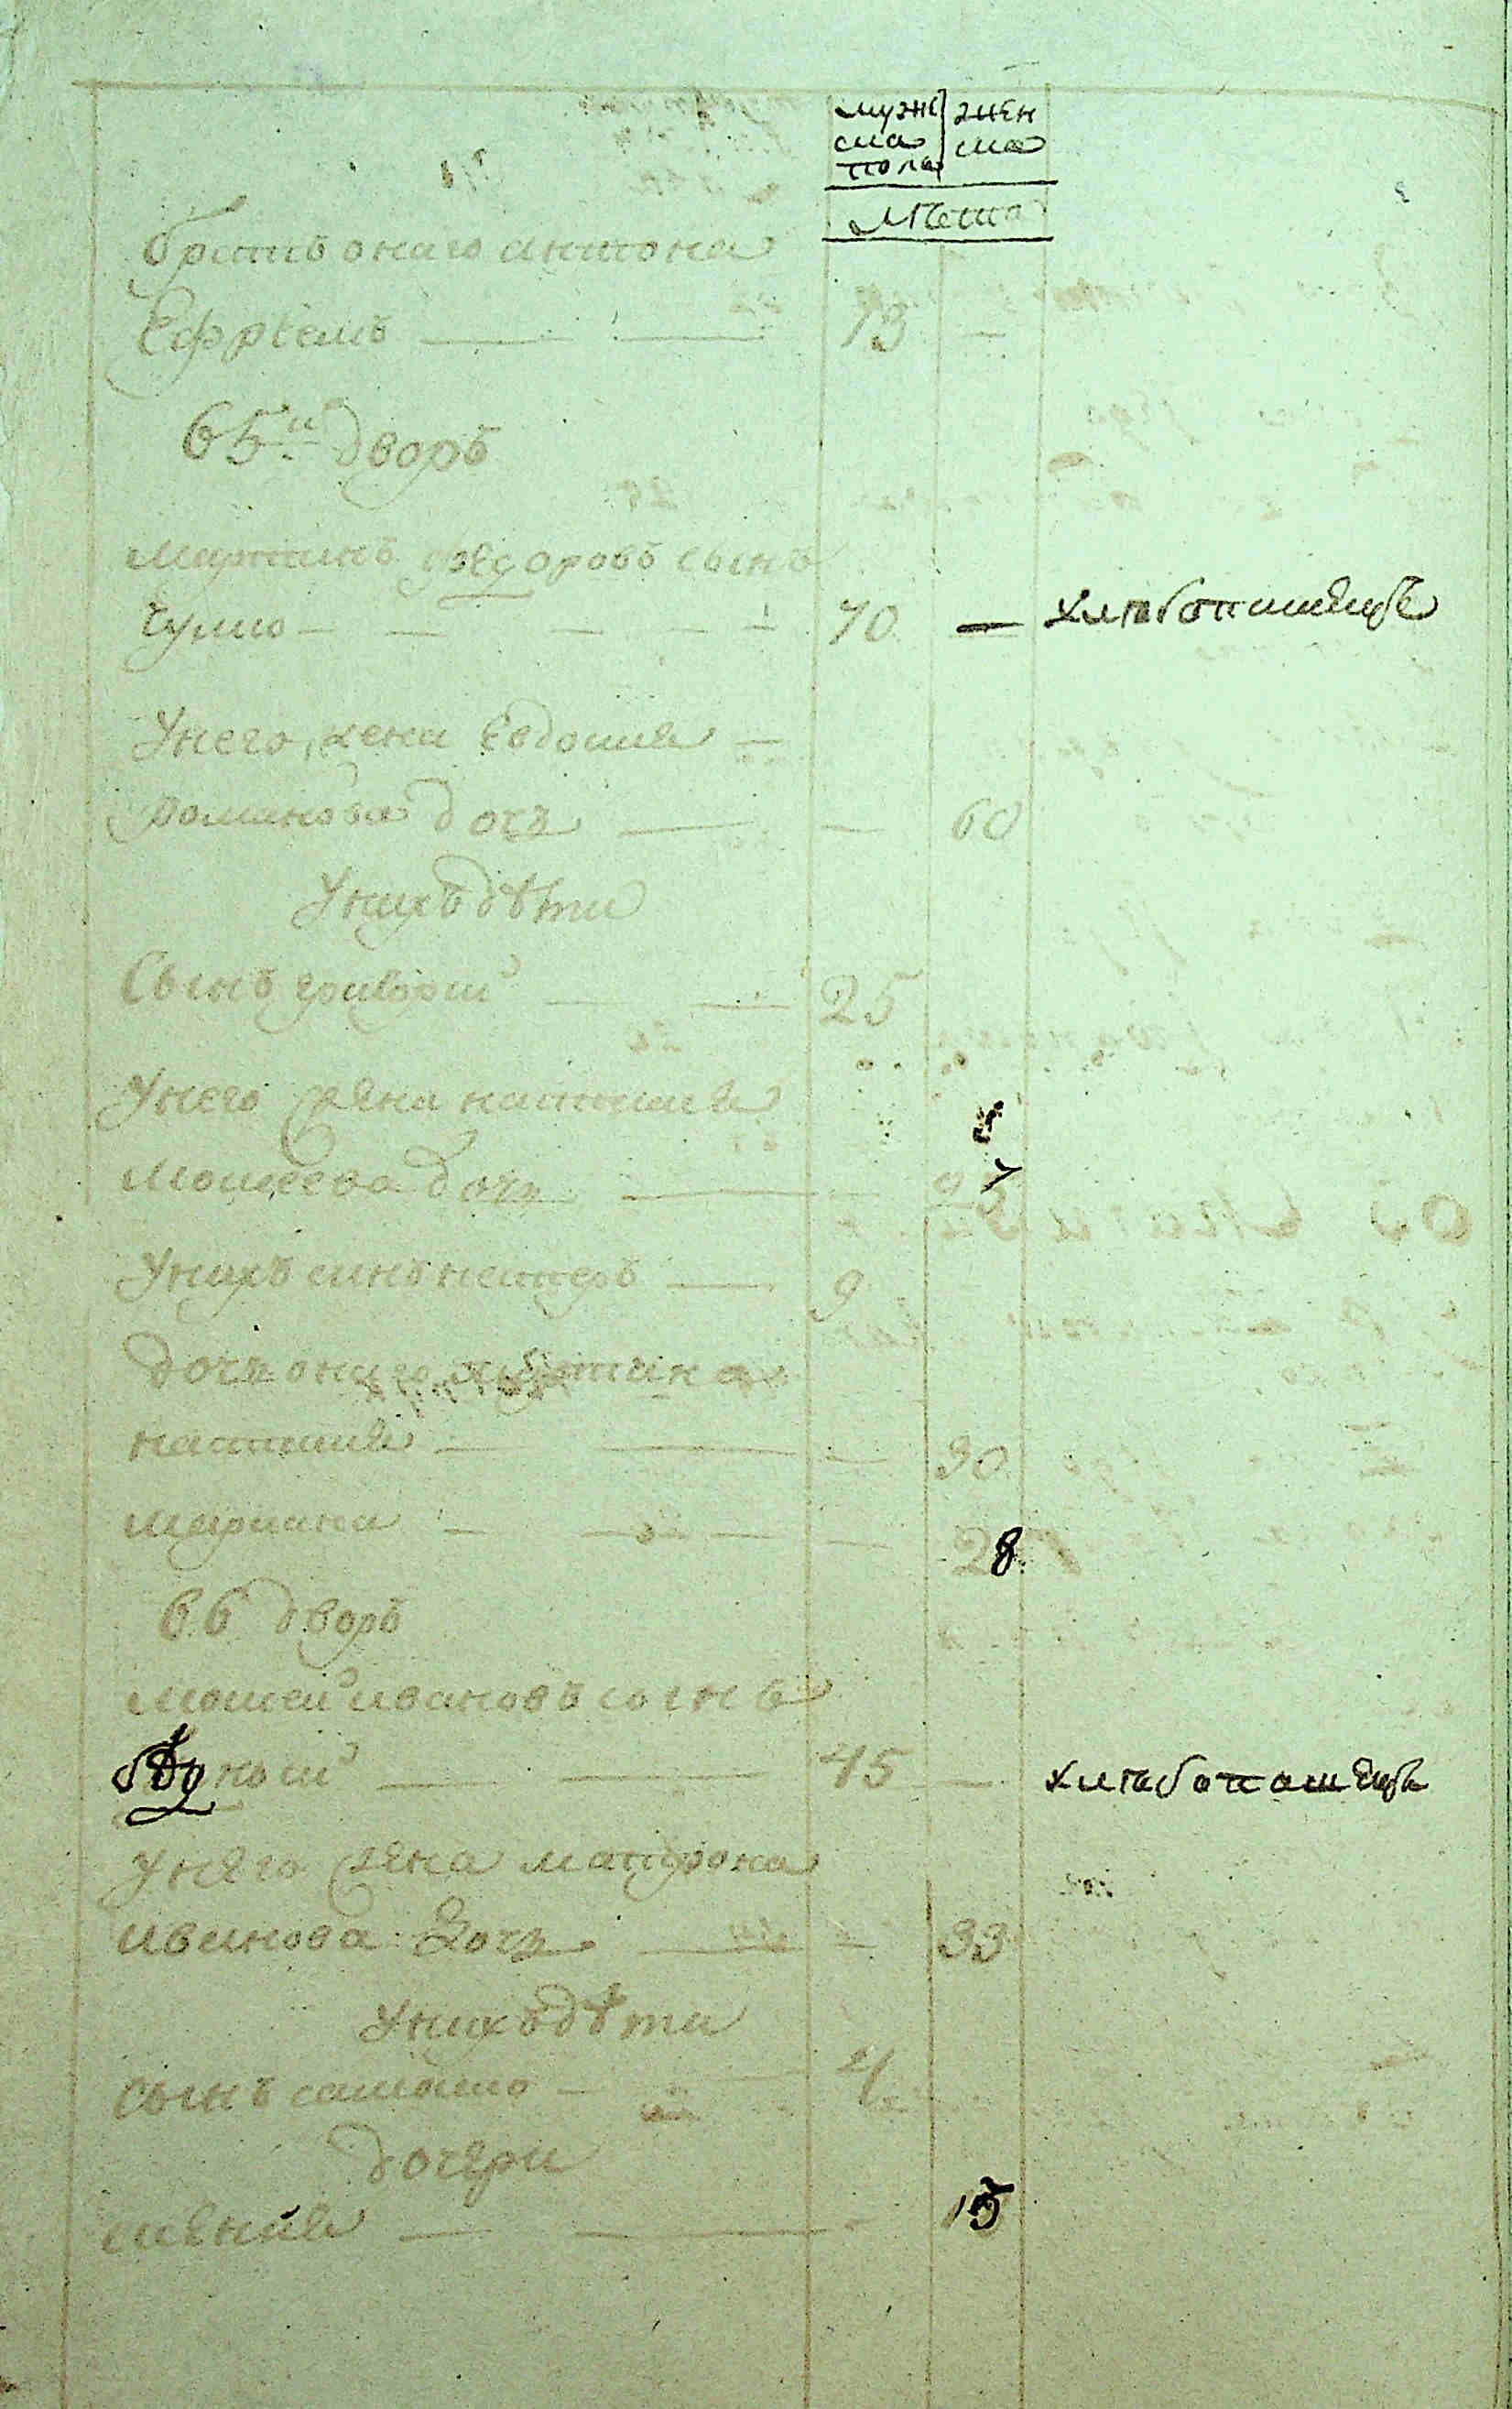 мужеска пола женска
лета
братъ онаго антона
Ефремъ — — 13 —
65й дворъ
мартинъ федоровъ сынъ
чумко — — — — — 70 — хлебопашецъ
унего жена Евдокия —
романова дочь — — 60
унихъ дѣти
Сынъ григорий — — 25
унего жена настасия
моисеева дочь — —
унихъ синъ петеръ — 9
дочь онаго мартина
настасия — — — 30
мариана — — — 28
66 дворъ
моисей ивановъ сынъ
— — 45 — хлебопашецъ
унего жена матрона
иванова дочь — — 33
унихъ дѣти
сынъ самойло — 4
дочери
— — — 15